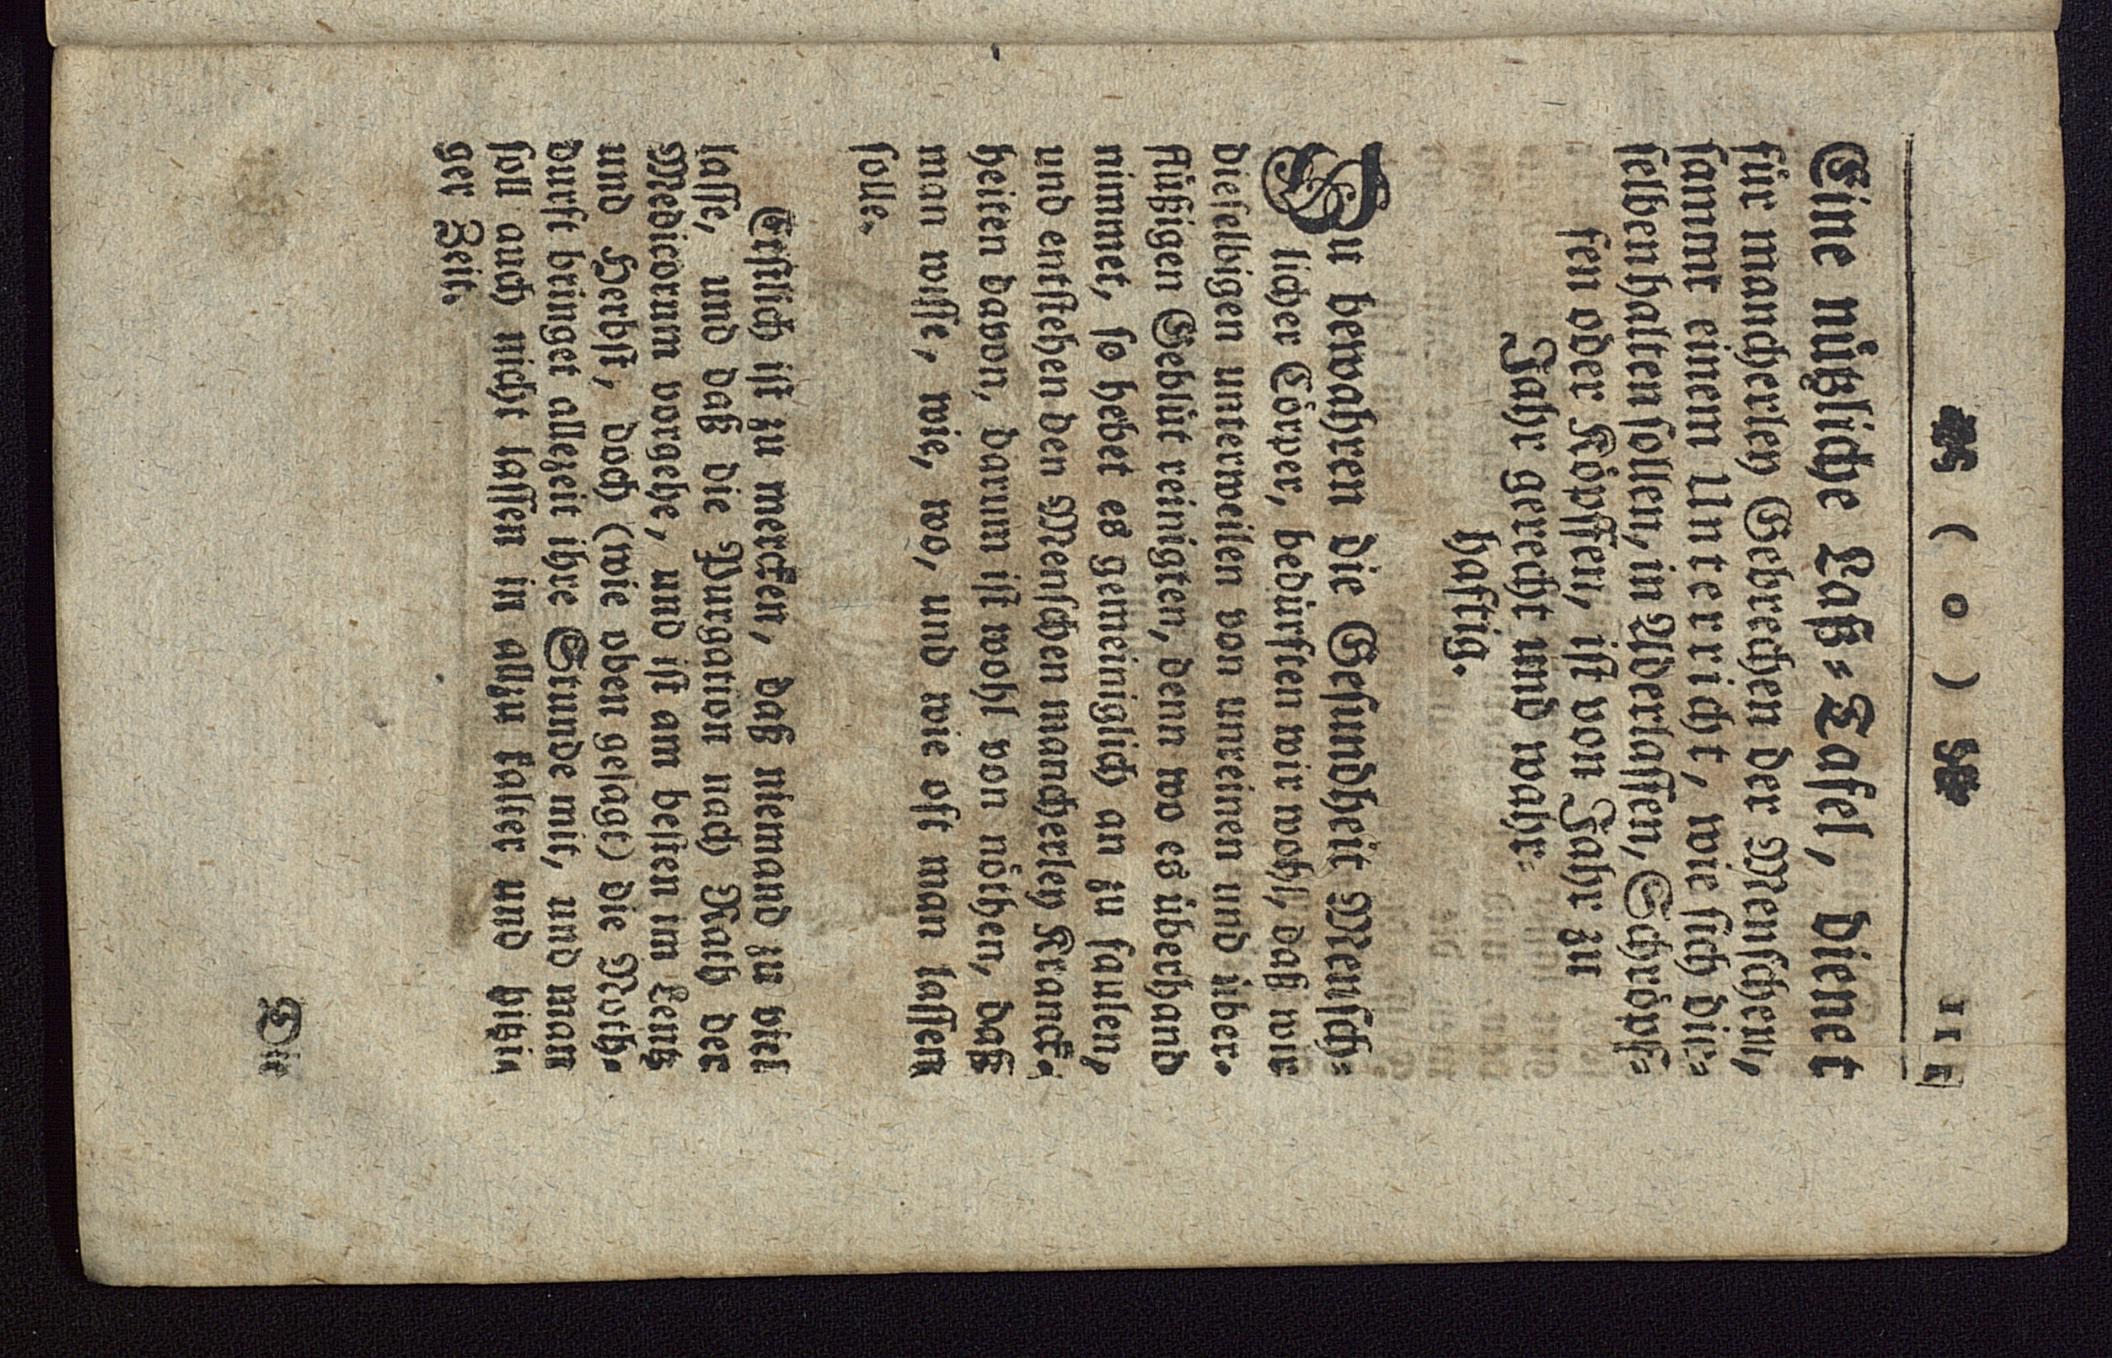 ( o ) 111
Eine nützliche Laß-Tafel, dienet
für mancherley Gebrechen der Menschen,
sammt einem Unterricht, wie sich die-
selben halten sollen, in Aderlassen, Schröpf-
fen oder Köpffen, ist von Jahr zu
Jahr gerecht und wahr-
hafftig.
Zu bewahren die Gesundheit Mensch-
licher Cörper, bedürften wir wohl, daß wir
dieselbigen unterweilen von unreinen und über-
flüßigen Geblüt reinigten, denn wo es überhand
nimmet, so hebet es gemeiniglich an zu faulen,
und entstehen den Menschen mancherley Kranck-
heiten davon, darum ist wohl von nöthen, daß
man wisse, wie, wo, und wie oft man lassen
solle.
Erstlich ist zu mercken, daß niemand zu viel
lasse, und daß die Purgation nach Rath der
Medicorum vorgehe, und ist am besten im Lentz
und Herbst, doch (wie oben gesagt) die Noth-
durft bringet allezeit ihre Stunde mit, und man
soll auch nicht lassen in allzu kalter und hitzi-
ger Zeit.